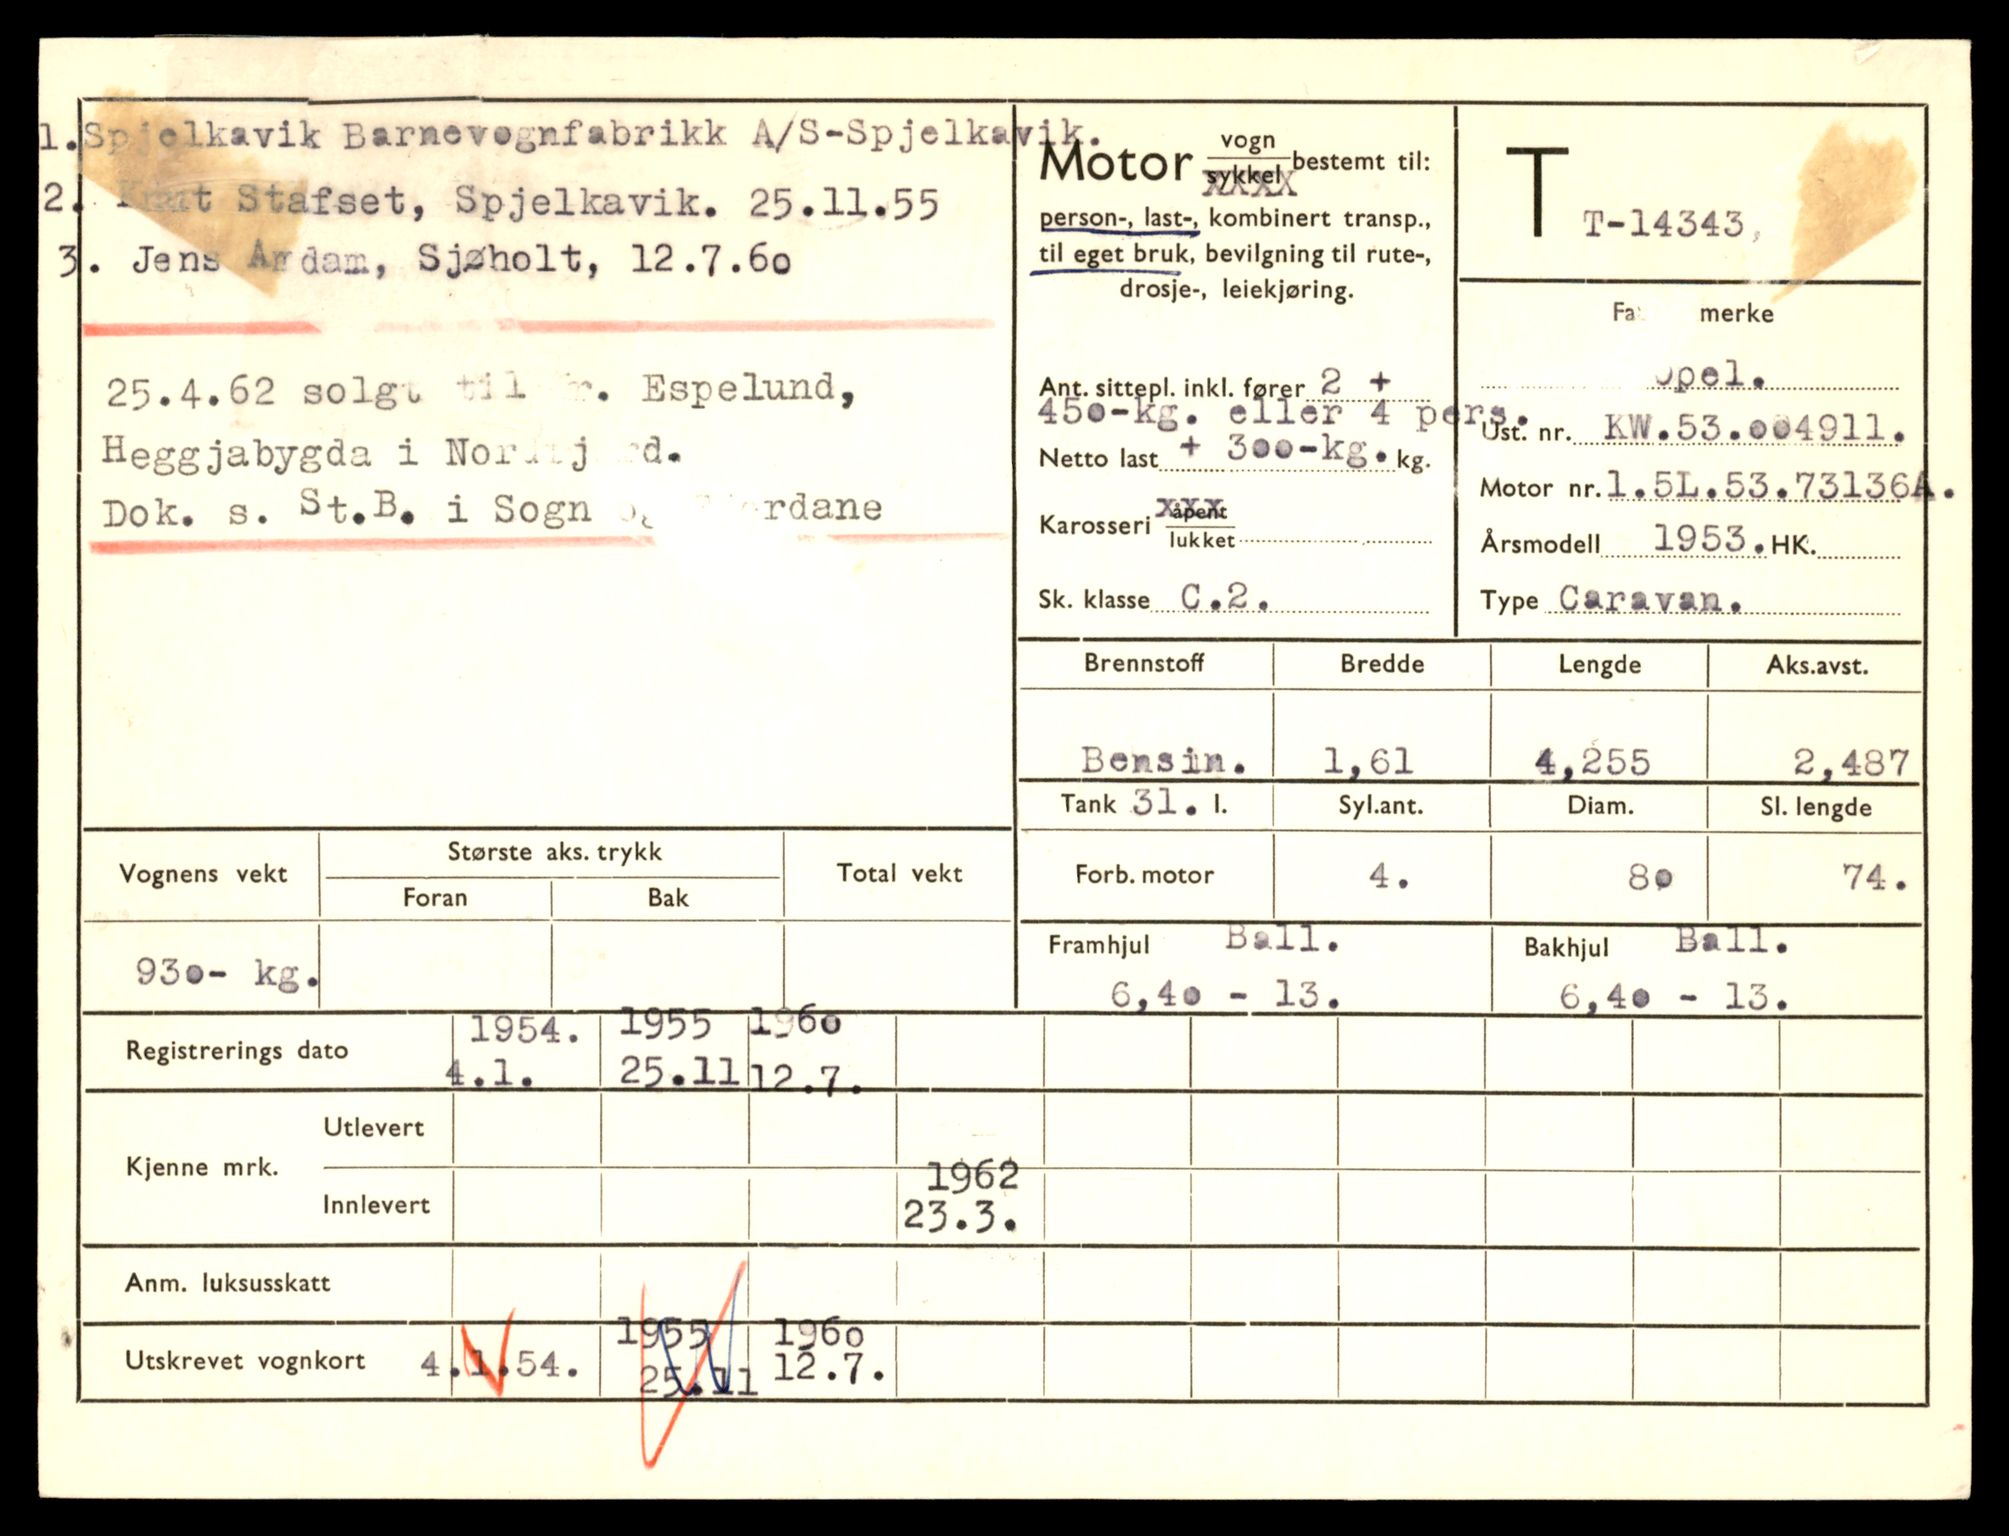 1. Spjelkavik Barnevognfabrikk A/S-Spjelkavik.
2. Knut Stafset, Spjelkavik. 25.11.55
3. Jens Amdam, Sjøholt, 12.7.60
25.4.62 solgt til Espelund,
Heggjabygda i
Dok. s. St.B. i Sogn og Fjordane
Motor vogn
sykkel bestemt til:
XXXX
person-, last-, kombinert transp.,
til eget bruk, bevilgning til rute-,
drosje-, leiekjøring.
Ant. sittepl. inkl. fører 2 +
450-kg. eller 4 pers.
Netto last + 300-kg. kg.
Karosseri xxx åpent
lukket
Sk. klasse C.2.
T T-14343,
merke
Opel.
Ust. nr. KW.53.004911.
Motor nr. 1.5L.53.73136A.
Årsmodell 1953. HK.
Type Caravan.
Brennstoff Bredde Lengde Aks.avst.
Bensin. 1,61 4,255 2,487
Tank 31. l. Syl.ant. Diam. Sl. lengde
Forb. motor 4. 80 74.
Framhjul Ball. Bakhjul Ball.
6,40 - 13. 6,40 - 13.
Vognens vekt Største aks. trykk Total vekt
Foran Bak
930- kg.
1954. 1955 1960
Registrerings dato
4.1. 25.11 12.7.
Utlevert
Kjenne mrk.
1962
Innlevert 23.3.
Anm. luksusskatt
1955 1960
Utskrevet vognkort 4.1.54. 25.11 12.7.